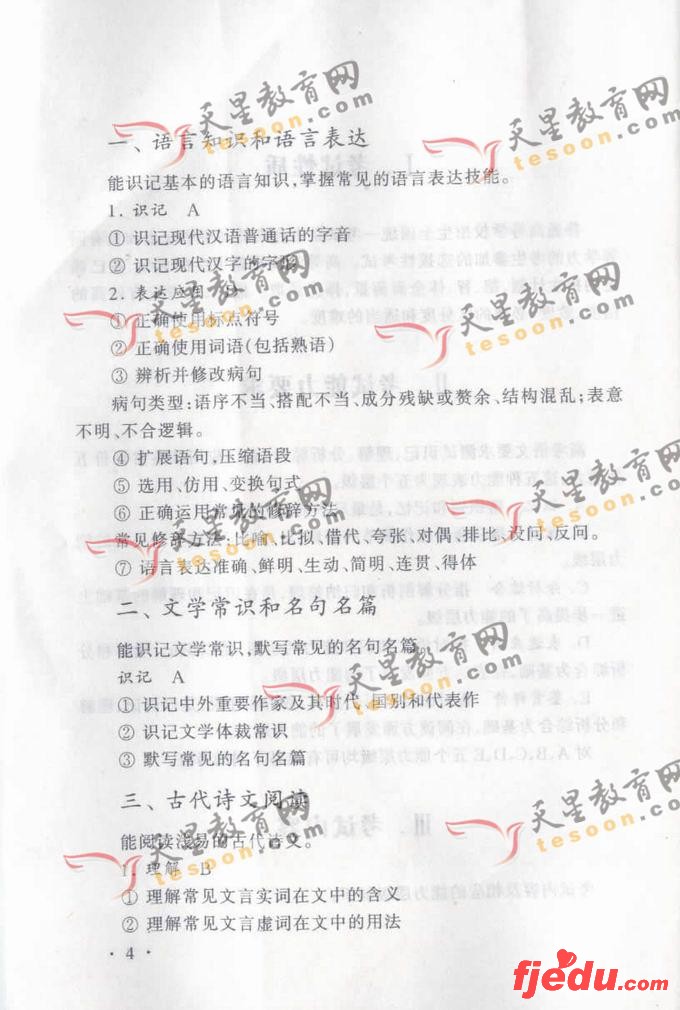 一、语言知识和语言表达
能识记基本的语言知识,掌握常见的语言表达技能。
1. 识记 A
① 识记现代汉语普通话的字音
② 识记现代汉字的字形
2. 表达应用 D
① 正确使用标点符号
② 正确使用词语(包括熟语)
③ 辨析并修改病句
病句类型:语序不当、搭配不当、成分残缺或赘余、结构混乱;表意
不明、不合逻辑。
④ 扩展语句,压缩语段
⑤ 选用、仿用、变换句式
⑥ 正确运用常见的修辞方法
常见修辞方法:比喻、比拟、借代、夸张、对偶、排比、设问、反问。
⑦ 语言表达准确、鲜明、生动、简明、连贯、得体
二、文学常识和名句名篇
能识记文学常识,默写常见的名句名篇
识记 A
① 识记中外重要作家及其时代、国别和代表作
② 识记文学体裁常识
③ 默写常见的名句名篇
三、古代诗文阅读
能阅读浅易的古代诗文。
1. 理解 B
① 理解常见文言实词在文中的含义
② 理解常见文言虚词在文中的用法
· 4 ·
天星教育网
tesoon.com
天星教育网
tesoon.com
天星教育网
tesoon.com
天星教育网
tesoon.com
天星教育网
tesoon.com
天星教育网
tesoon.com
天星教育网
tesoon.com
天星教育网
tesoon.com
天星教育网
tesoon.com
fjedu.com